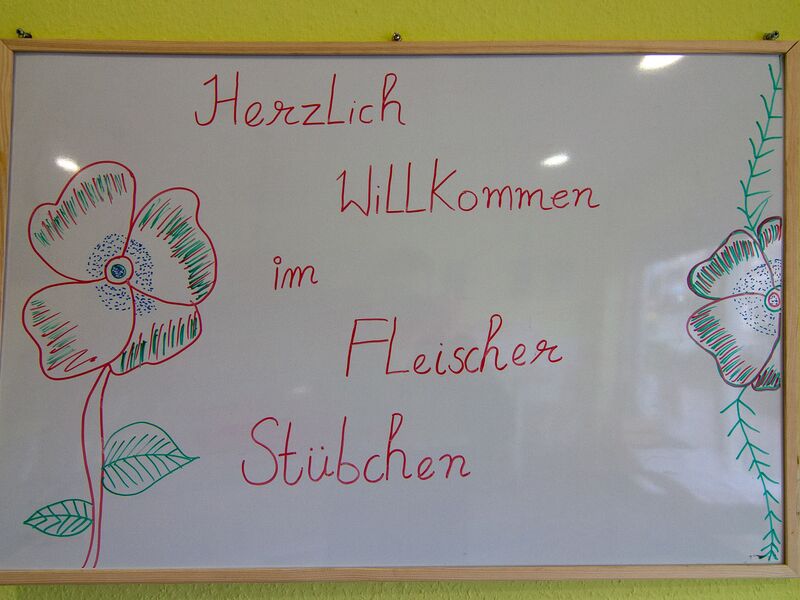 Herzlich
Willkommen
im
Fleischer
Stübchen